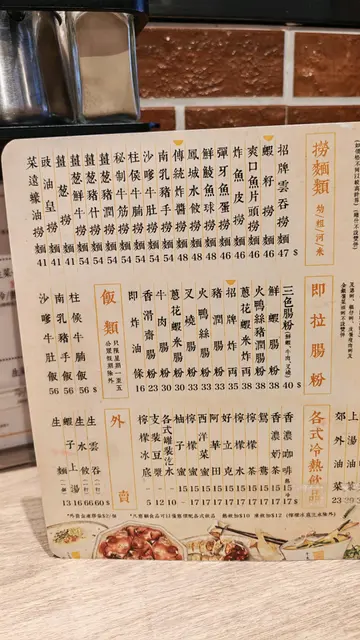 撈麵類
幼．粗．河．米
招牌雲吞撈麵 47
蝦籽撈麵 46
爽口魚片頭撈麵
炸魚皮撈麵 46
彈牙魚蛋撈麵
鮮鯪魚球撈麵
鳳城水餃撈麵
傳統炸醬撈麵
南乳豬手撈麵
沙嗲牛肚撈麵
柱侯牛腩撈麵
秘制牛筋撈麵
薑葱豬潤撈麵
薑葱豬什撈麵
薑葱鮮牛撈麵
薑葱撈麵 41
豉油皇撈麵
菜遠緣油撈麵 41
即拉腸粉
三色腸粉(鮮蝦、牛肉、叉燒) 40 $
鮮蝦腸粉 38
火鴨絲豬潤腸粉 38
葱花蝦米炸両 38
招牌炸両 35
豬潤腸粉 33
火鴨絲腸粉 33
叉燒腸粉 33
葱花蝦米腸粉 33
牛肉腸粉 30
香滑齋腸粉 23
即炸油條 16
飯類
只限星期一至五
公眾假期除外
柱侯牛腩飯 56
南乳豬手飯 56
沙嗲牛肚飯 56
各式冷熱飲品
香濃咖啡
香濃奶茶
鴛鴦
檸檬茶
檸檬水
好立克
阿華田
杏仁霜
西洋菜蜜
檸檬蜜
柚子蜜
各式罐裝汽水 10
支裝豆漿 12
檸檬冰底 5
外賣
生雲吞
生水餃
蝦子上湯
生麵
13 16 66 60 $
郊外油菜
上湯油菜
*外賣盒連膠袋$2/個